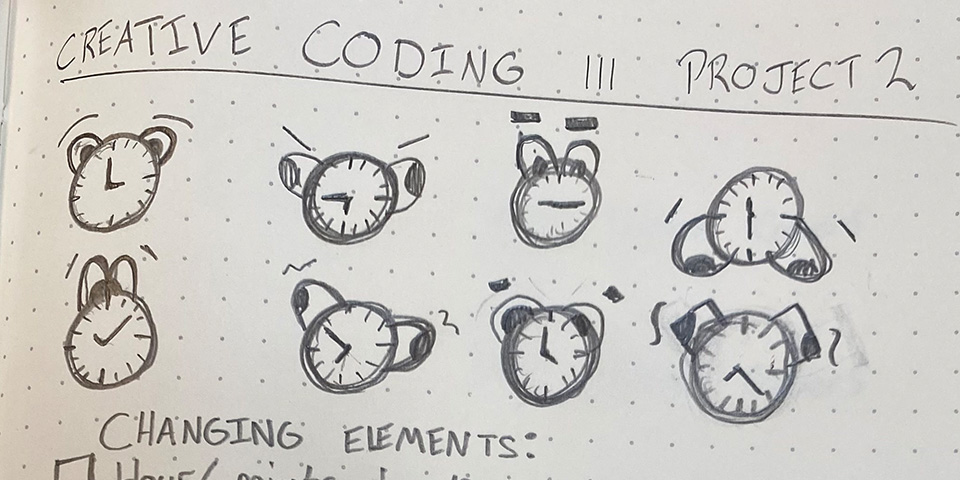 CREATIVE CODING III PROJECT 2
CHANGING ELEMENTS: